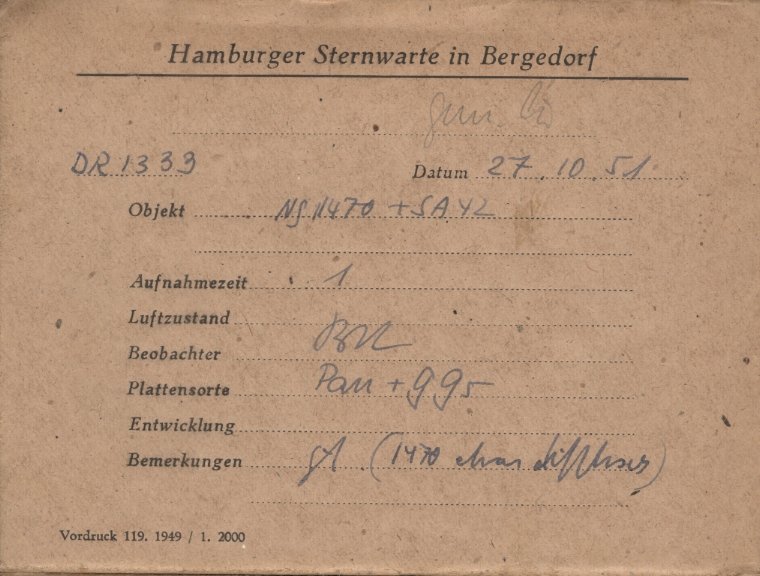 Hamburger Sternwarte in Bergedorf
DR 1333 Datum 27.10.51
Objekt 1470 + SA 42
Aufnahmezeit 1
Luftzustand
Beobachter
Plattensorte Pan + gg5
Entwicklung
Bemerkungen (1470 etwas diffuser)
Vordruck 119. 1949 / 1. 2000